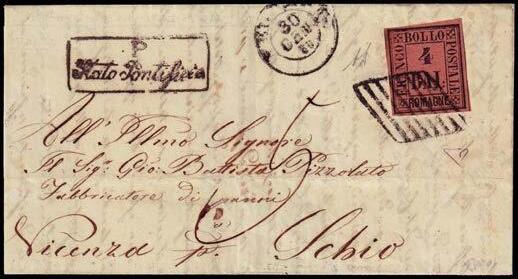 P.
Stato Pontificio
30
GEN
FRANCO
BOLLO
POSTALE
4
BAJ
ROMAGNE
5
All' Illmo Signore
Il Sigr Gio: Battista Pizzolato
Fabbricatore di panni
Vicenza p. Schio